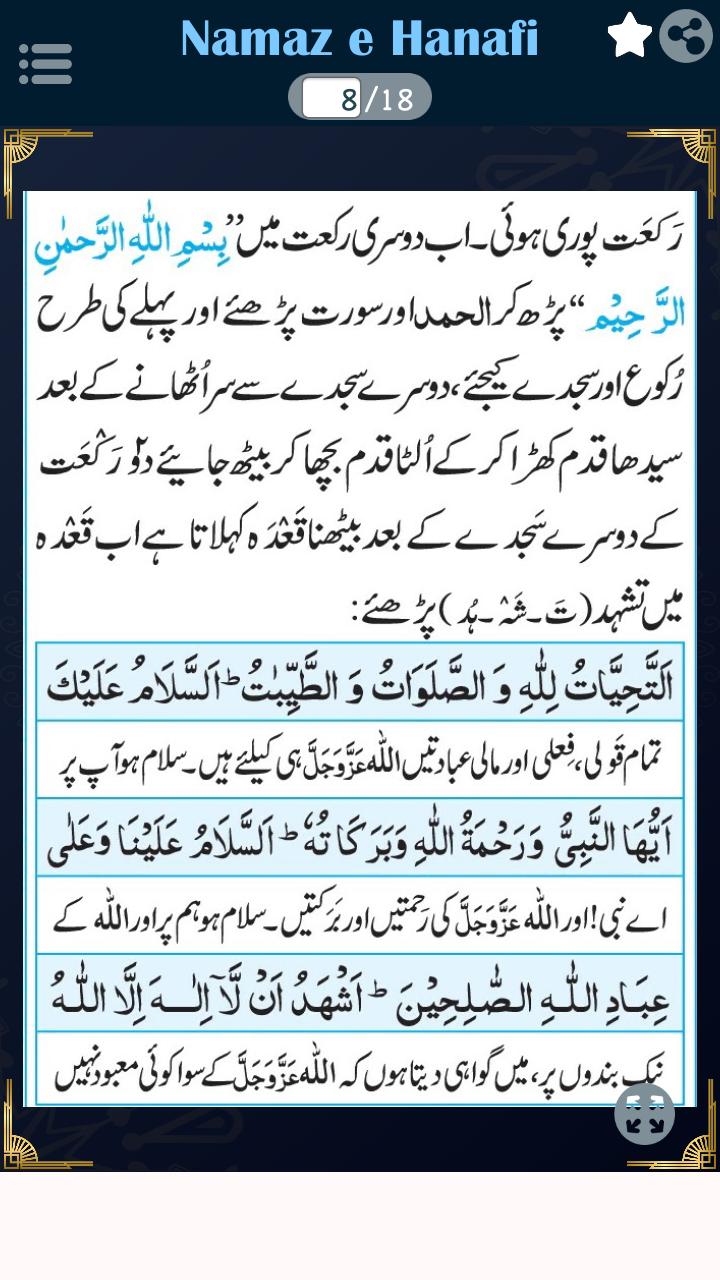 Namaz e Hanafi
8/18
رَکعَت پوری ہوئی۔اب دوسری رکعت میں ”بِسْمِ اللّٰہِ الرَّحمٰنِ
الرَّحِیْم“ پڑھ کر الحمد اور سورت پڑھئے اور پہلے کی طرح
رُکوع اور سجدے کیجئے، دوسرے سجدے سے سر اُٹھانے کے بعد
سیدھا قدم کھڑا کر کے اُلٹا قدم بچھا کر بیٹھ جائیے دو۲ رَکْعَت
کے دوسرے سَجدے کے بعد بیٹھنا قَعْدَہ کہلاتا ہے اب قَعْدہ
میں تشہد (تَ۔شَہْ۔ہُد) پڑھئے:
اَلتَّحِیَّاتُ لِلّٰہِ وَ الصَّلَوَاتُ وَ الطَّیِّبٰتُ ؕ اَلسَّلَامُ عَلَیْکَ
تمام قَولی، فِعلی اور مالی عبادتیں اللہ عَزَّوَجَلَّ ہی کیلئے ہیں۔ سلام ہو آپ پر
اَیُّھَا النَّبِیُّ وَرَحْمَةُ اللّٰہِ وَبَرَکَاتُہٗ ؕ اَلسَّلَامُ عَلَیْنَا وَعَلٰی
اے نبی! اور اللہ عَزَّوَجَلَّ کی رَحمتیں اور بَرَکتیں۔ سلام ہو ہم پر اور اللہ کے
عِبَادِ اللّٰہِ الصّٰلِحِیْنَ ؕ اَشْھَدُ اَنْ لَّآ اِلٰـہَ اِلَّا اللّٰہُ
نیک بندوں پر، میں گواہی دیتا ہوں کہ اللہ عَزَّوَجَلَّ کے سوا کوئی معبود نہیں